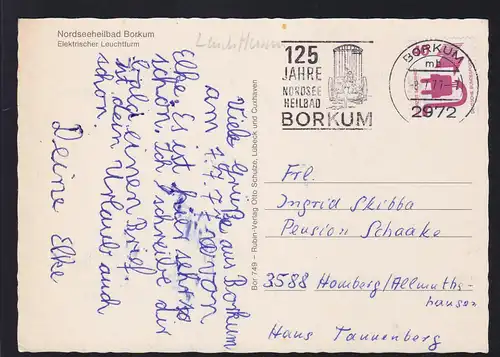 Nordseeheilbad Borkum
Elektrischer Leuchtturm
Leuchtturm
125
JAHRE
NORDSEE
HEILBAD
BORKUM
BORKUM
2972
Viele Grüße aus Borkum
am 7.7.77 von
Elke. Es ist hier sehr
schön. Ich schreibe dir
bald einen Brief.
Ist dein Urlaub auch
schön.
Deine Elke
Bor 749 – Rubin-Verlag Otto Schulze, Lübeck und Cuxhaven
Frl.
Ingrid Skibba
Pension Schaake
3588 Homberg/Allmuths-
hausen
Haus Tannenberg